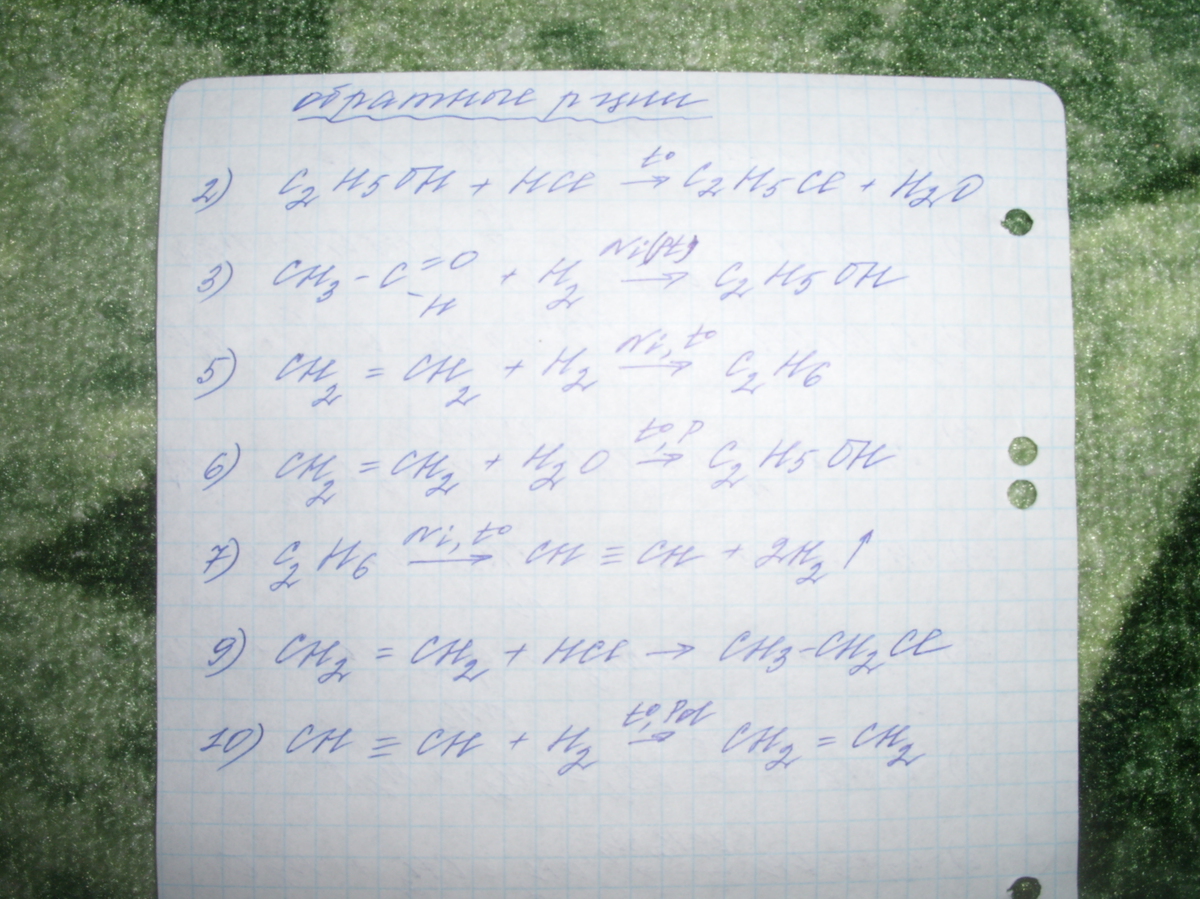 обратные р-ции
2) C₂H₅OH + HCl t°→ C₂H₅Cl + H₂O
3) CH₃-C=O -H + H₂ Ni(Pt)→ C₂H₅OH
5) CH₂ = CH₂ + H₂ Ni, t°→ C₂H₆
6) CH₂ = CH₂ + H₂O t°, P→ C₂H₅OH
7) C₂H₆ Ni, t°→ CH ≡ CH + 2H₂↑
9) CH₂ = CH₂ + HCl → CH₃-CH₂Cl
10) CH ≡ CH + H₂ t°, Pd→ CH₂ = CH₂